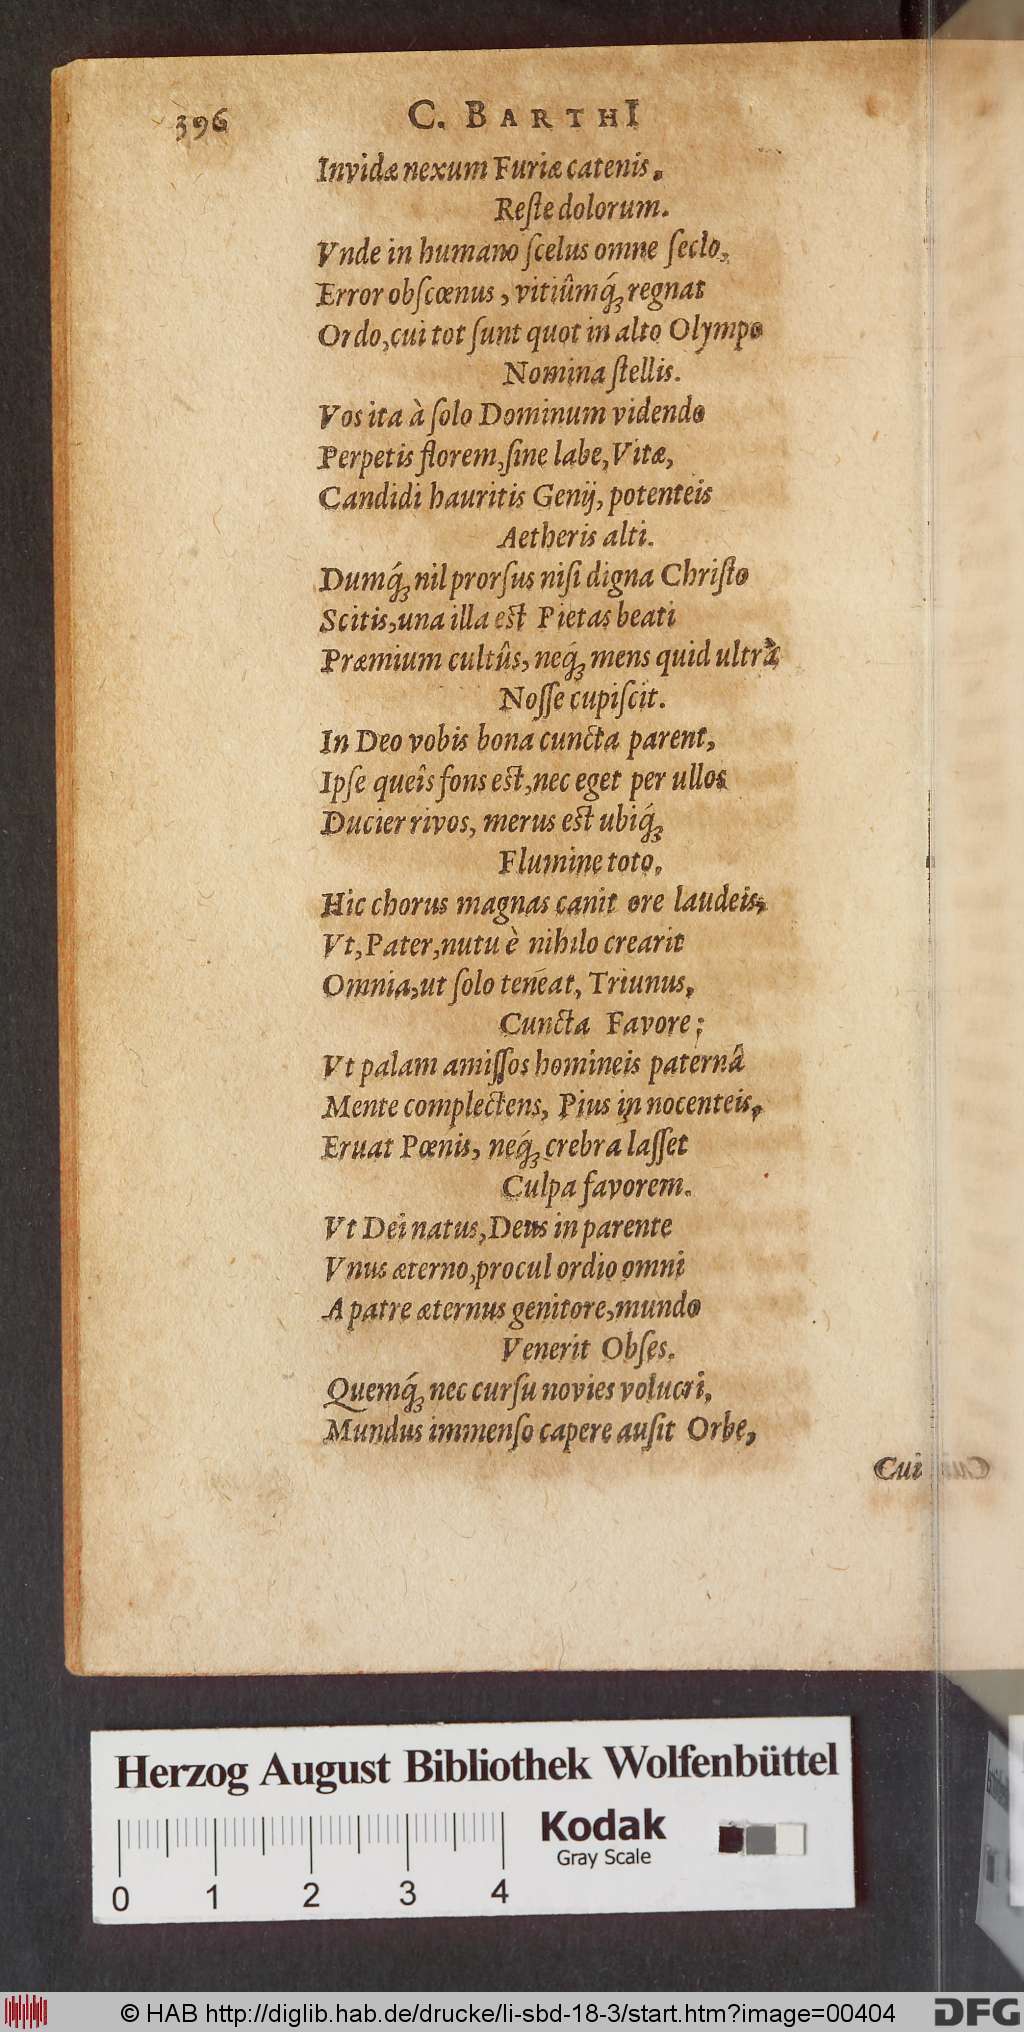 396
C. BARTHI
Invidæ nexum Furiæ catenis.
Reſte dolorum.
Vnde in humano ſcelus omne ſeclo,
Error obſcœnus, vitiûmq́; regnat
Ordo, cui tot ſunt quot in alto Olympo
Nomina ſtellis.
Vos ita à ſolo Dominum videndo
Perpetis florem, ſine labe, Vitæ,
Candidi hauritis Genij, potenteis
Aetheris alti.
Dumq́; nil prorſus niſi digna Chriſto
Scitis, una illa eſt Pietas beati
Præmium cultûs, neq́; mens quid ultrà
Noſſe cupiſcit.
In Deo vobis bona cuncta parent,
Ipſe queîs fons eſt, nec eget per ullos
Ducier rivos, merus eſt ubiq́;
Flumine toto.
Hic chorus magnas canit ore laudeis,
Vt, Pater, nutu è nihilo crearit
Omnia, ut ſolo teneat, Triunus,
Cuncta Favore;
Vt palam amiſſos homineis paternâ
Mente complectens, Pius in nocenteis,
Eruat Pœnis, neq́; crebra laſſet
Culpa favorem.
Vt Dei natus, Deus in parente
Vnus æterno, procul ordio omni
A patre æternus genitore, mundo
Venerit Obſes.
Quemq́; nec curſu novies volucri,
Mundus immenſo capere auſit Orbe,
Cui
Herzog August Bibliothek Wolfenbüttel
Kodak
Gray Scale
0 1 2 3 4
© HAB http://diglib.hab.de/drucke/li-sbd-18-3/start.htm?image=00404
DFG